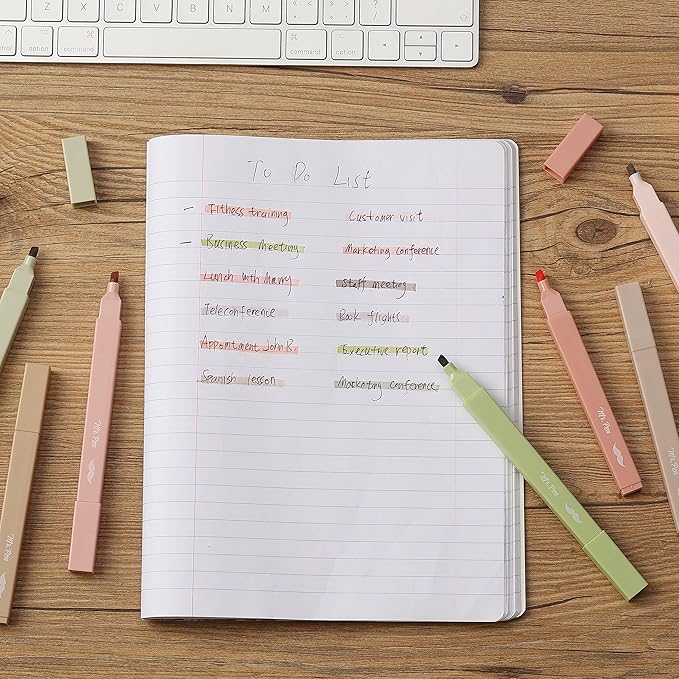 control option command command option
To Do List
- Fitness training Customer visit
- Business Meeting Marketing conference
Lunch with Marry Staff meeting
Teleconference Book flights
Appointment John B. Executive report
Spanish lesson Marketing conference
Mr. Pen
Mr. Pen
Mr. Pen
Mr. Pen
Mr. Pen